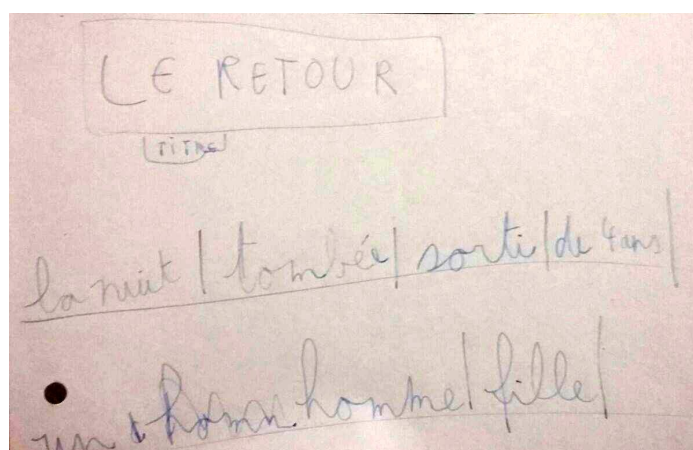 LE RETOUR
TITRE
la nuit | tombée | sorti | de 4 ans |
un homme | fille |